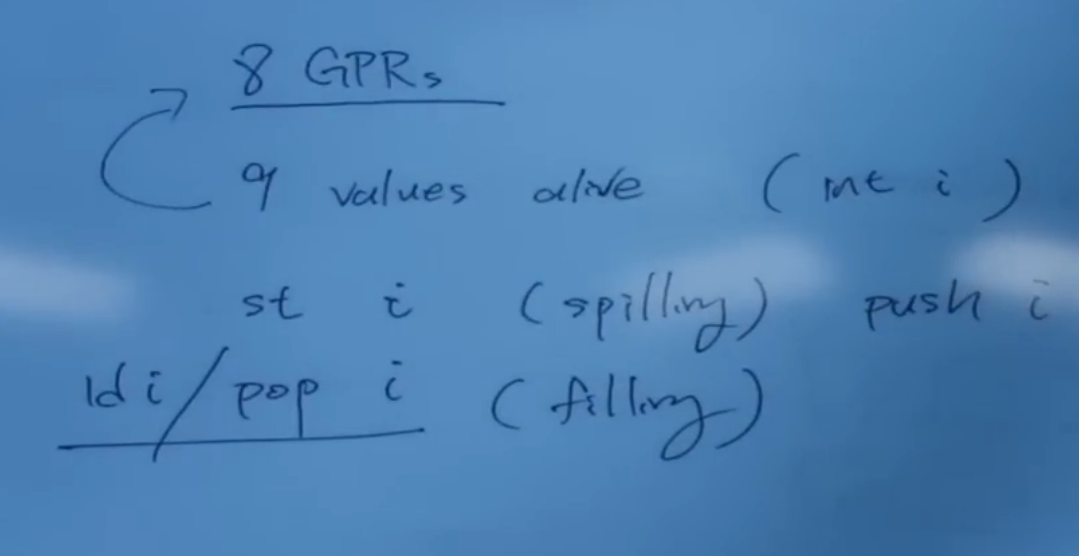 8 GPRs
9 values alive (int i)
st i (spilling) push i
ld i/pop i (filling)